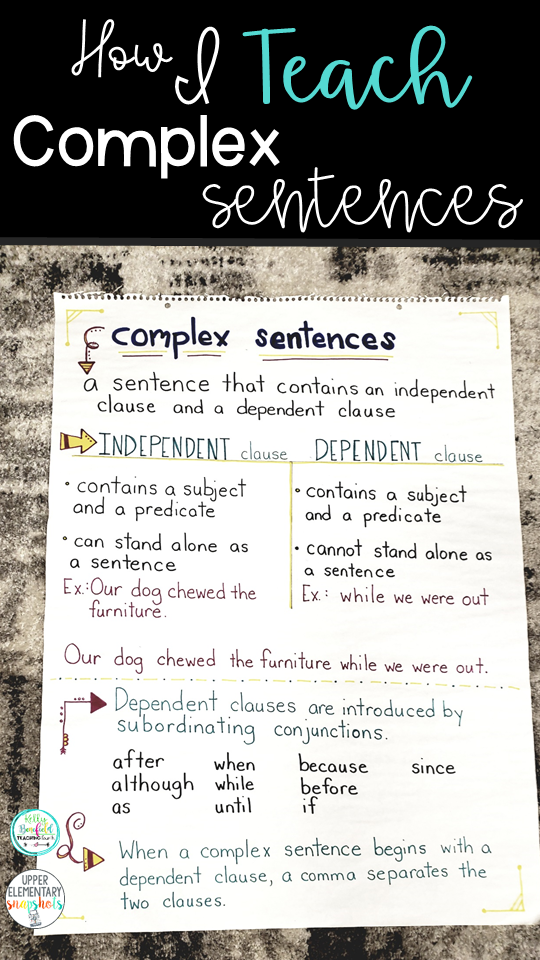 How I Teach
Complex
sentences
complex sentences
a sentence that contains an independent
clause and a dependent clause
INDEPENDENT clause
• contains a subject
and a predicate
• can stand alone as
a sentence
Ex.: Our dog chewed the
furniture.
DEPENDENT clause
• contains a subject
and a predicate
• cannot stand alone as
a sentence
Ex.: while we were out
Our dog chewed the furniture while we were out.
Dependent clauses are introduced by
subordinating conjunctions.
after when because since
although while before
as until if
When a complex sentence begins with a
dependent clause, a comma separates the
two clauses.
TEACHING
UPPER
ELEMENTARY
snapshots